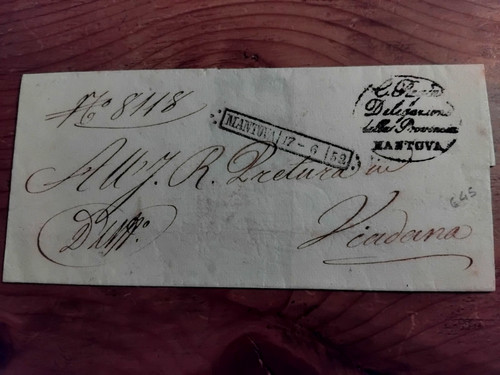 N.o 8118
MANTOVA 17-6 52
Delegazione
della Provincia
MANTOVA
All'I. R. Pretura in
Viadana
645